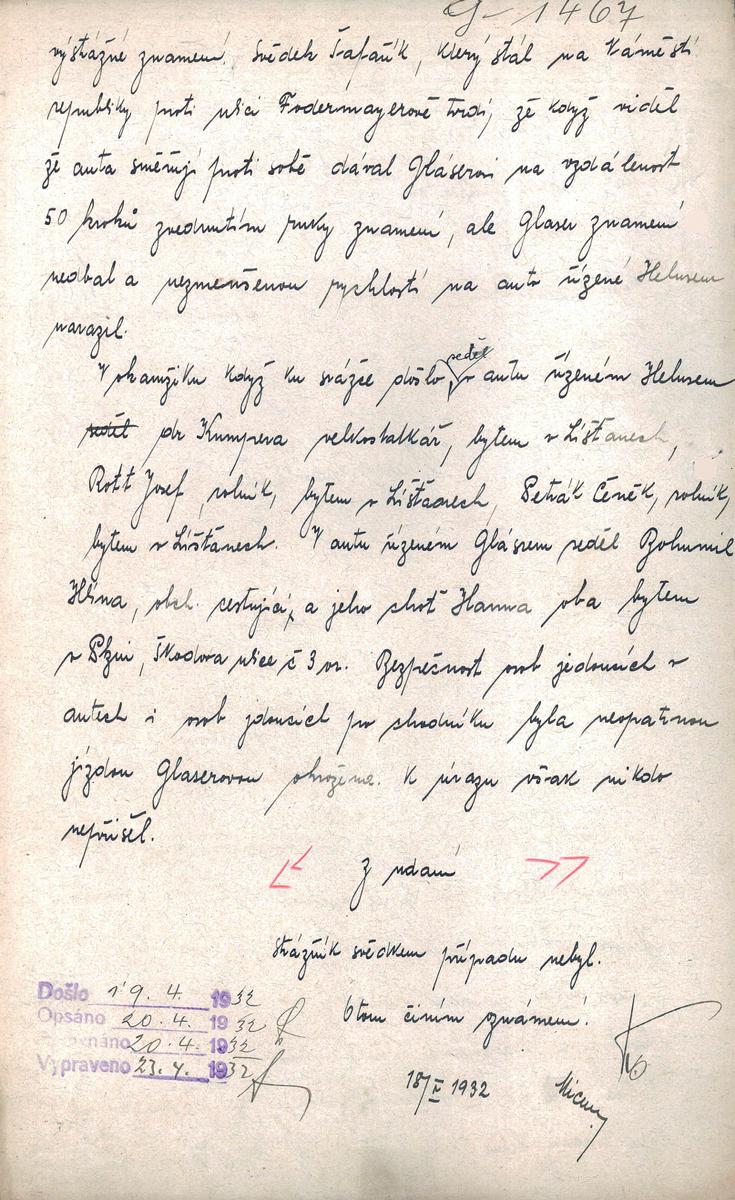 J-1467
výstražné znamení. Svědek Šafařík, který stál na Náměstí
republiky proti ulici Fodermayerově tvrdí, že když viděl
že auta směřují proti sobě dával Gláserovi na vzdálenost
50 kroků zvednutím ruky znamení, ale Glaser znamení
nedbal a nezmenšenou rychlostí na auto řízené Helusem
narazil.
V okamžiku když ku srážce došlo, seděl v autu řízeném Helusem
seděl dr Kumpera velkostatkář, bytem v Líšťanech,
Rott Josef, rolník, bytem v Líšťanech, Petrák Čeněk, rolník,
bytem v Líšťanech. V autu řízeném Glásrem seděl Bohumil
Hlína, obch. cestující, a jeho choť Hanna oba bytem
v Plzni, Škodova ulice č 3 Bezpečnost osob jedoucích v
autech i osob jdoucích po chodníku byla neopatrnou
jízdou Glaserovou ohrožena. K úrazu však nikdo
nepřišel.
Z udání
Strážník svědkem případu nebyl.
O tom činím oznámení.
Došlo 19. 4. 1932
Opsáno 20. 4. 1932
20. 4. 1932
Vypraveno 23. 4. 1932
18/IV 1932